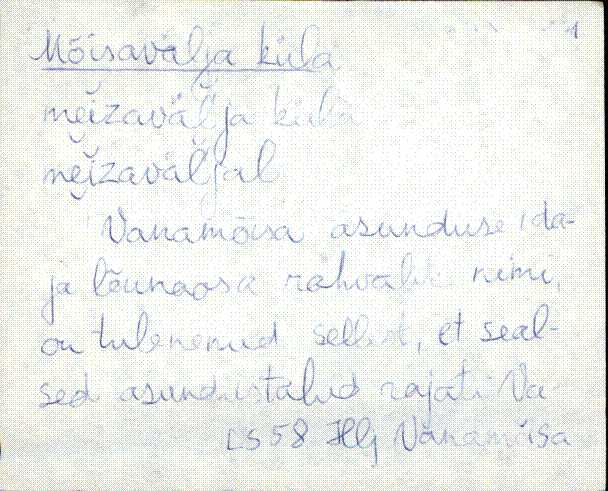 1
Mõisavälja küla
mĕi̮zaväĺja küla
mĕi̮zaväĺjal
Vanamõisa asunduse ida-
ja lõunaosa rahvalik nimi,
on tulenenud sellest, et seal-
sed asundustalud rajati Va-
58 Vanamõisa